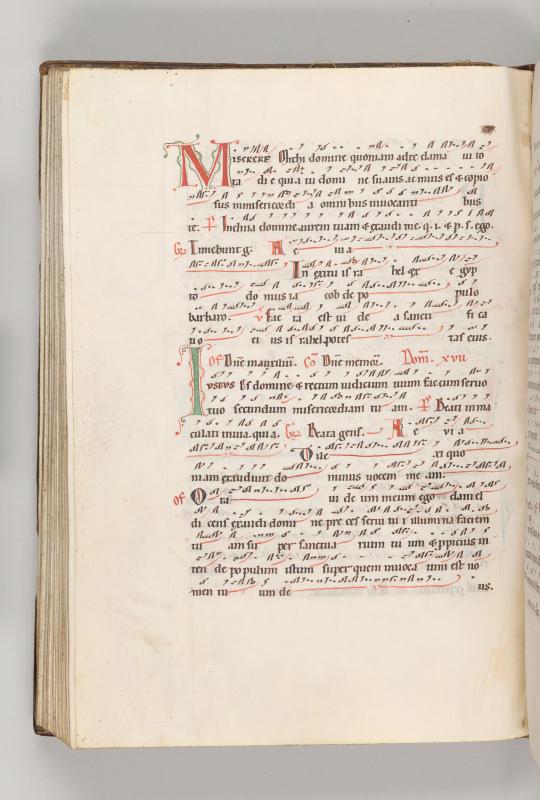 Miserere michi domine quoniam ad te clama ui to
ta di e quia tu domi ne suauis ac mitis es & copio
sus in misericordi a omnibus inuocanti bus
te. Ps Inclina domine aurem tuam & exaudi me. q. i. & p. s. ego.
Timebunt g. A e uia
In exitu is ra hel ex e gyp
to do mus ia cob de po pulo
barbaro. V Fac ta est iu de a sancti fi ca
tio ei us is rahel potes tas eius.
Of Dne in auxiliū. Co Dne memor. Dom. xvii
Iustus es domine & rectum iudicium tuum fac cum seruo
tuo secundum misericordiam tu am. Ps Beati inma
culati in uia. qui a. Beata gens. A e uia
Dile xi quo
niam exaudiuit do minus uocem me am.
Of Ora ui de um meum ego dani el
di cens exaudi domi ne pre ces serui tu i illumina faciem
tu am su per sanctua rium tu um & ppicius in
ten de populum istum super quem inuoca tum est no
men tu um de us.